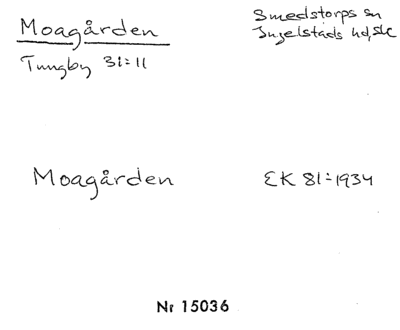 Moagården
Smedstorps sn
Ingelstads hd, Sk
Tungby 31:11
Moagården
EK 81:1934
Nr 15036